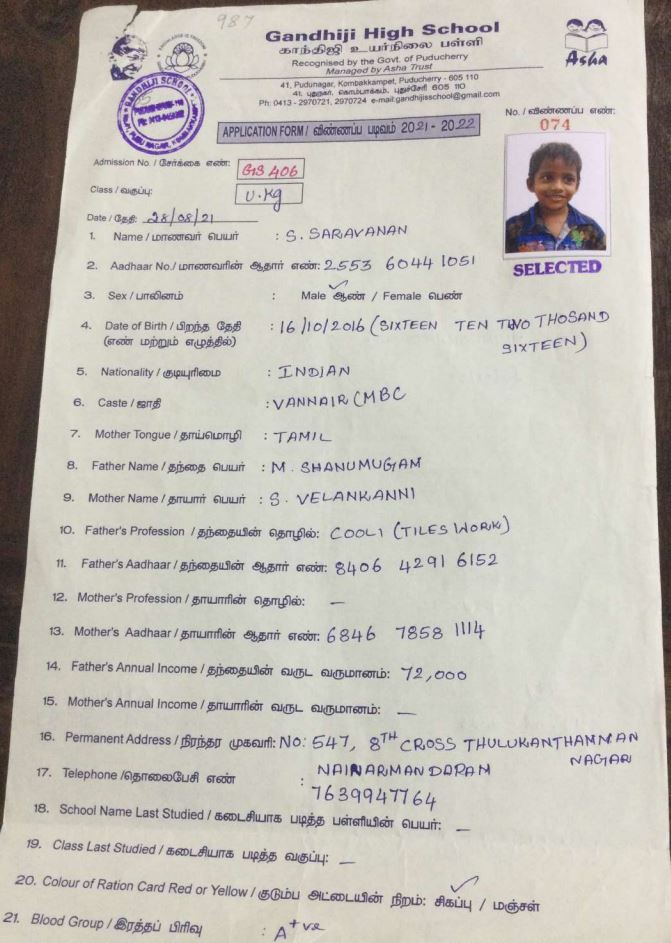 987
Gandhiji High School
காந்திஜி உயர்நிலை பள்ளி
Recognised by the Govt. of Puducherry
Managed by Asha Trust
Asha
41, Pudunagar, Kombakkampet, Puducherry - 605 110
41, புதுநகர், கொம்பாக்கம், புதுச்சேரி 605 110
Ph: 0413 - 2970721, 2970724 e-mail:gandhijisschool@gmail.com
GANDHIJI SCHOOL
No. / விண்ணப்ப எண்:
074
APPLICATION FORM / விண்ணப்ப படிவம் 2021 - 2022
Admission No. / சேர்க்கை எண்: GHS 406
Class / வகுப்பு: U.Kg
Date / தேதி: 28/08/21
SELECTED
1. Name / மாணவர் பெயர் : S. SARAVANAN
2. Aadhaar No./ மாணவரின் ஆதார் எண்: 2553 6044 1051
3. Sex / பாலினம் : Male ஆண் / Female பெண்
4. Date of Birth / பிறந்த தேதி : 16/10/2016 (SIXTEEN TEN TWO THOSAND
(எண் மற்றும் எழுத்தில்) SIXTEEN)
5. Nationality / குடியுரிமை : INDIAN
6. Caste / ஜாதி : VANNAIR (MBC
7. Mother Tongue / தாய்மொழி : TAMIL
8. Father Name / தந்தை பெயர் : M. SHANUMUGAM
9. Mother Name / தாயார் பெயர் : S. VELANKANNI
10. Father's Profession / தந்தையின் தொழில்: COOLI (TILES WORK)
11. Father's Aadhaar / தந்தையின் ஆதார் எண்: 8406 4291 6152
12. Mother's Profession / தாயாரின் தொழில்: —
13. Mother's Aadhaar / தாயாரின் ஆதார் எண்: 6846 7858 1114
14. Father's Annual Income / தந்தையின் வருட வருமானம்: 72,000
15. Mother's Annual Income / தாயாரின் வருட வருமானம்: —
16. Permanent Address / நிரந்தர முகவரி: NO: 547, 8TH CROSS THULUKANTHAMMAN
NAGAR
NAINARMANDAPAM
17. Telephone /தொலைபேசி எண் : 7639947764
18. School Name Last Studied / கடைசியாக படித்த பள்ளியின் பெயர்: —
19. Class Last Studied / கடைசியாக படித்த வகுப்பு: —
20. Colour of Ration Card Red or Yellow / குடும்ப அட்டையின் நிறம்: சிகப்பு / மஞ்சள்
21. Blood Group / இரத்தப் பிரிவு : A+ve